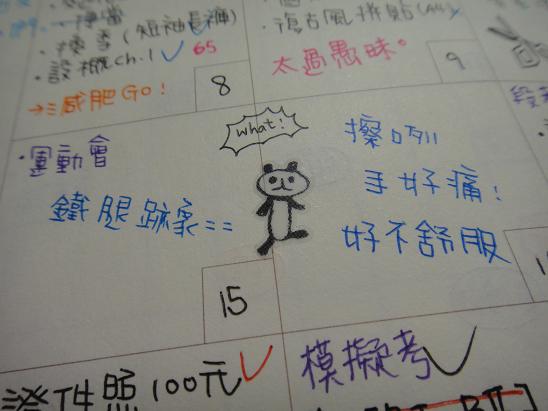 ·換季(短袖長褲)
·設概ch.1 ✓ 65
→減肥Go!
8
復古風拼貼(A4)
太過愚昧。
9
·運動會
鐵腿跡象==
15
what!
擦咧
手好痛!
好不舒服
1
證件照100元✓
模擬考✓